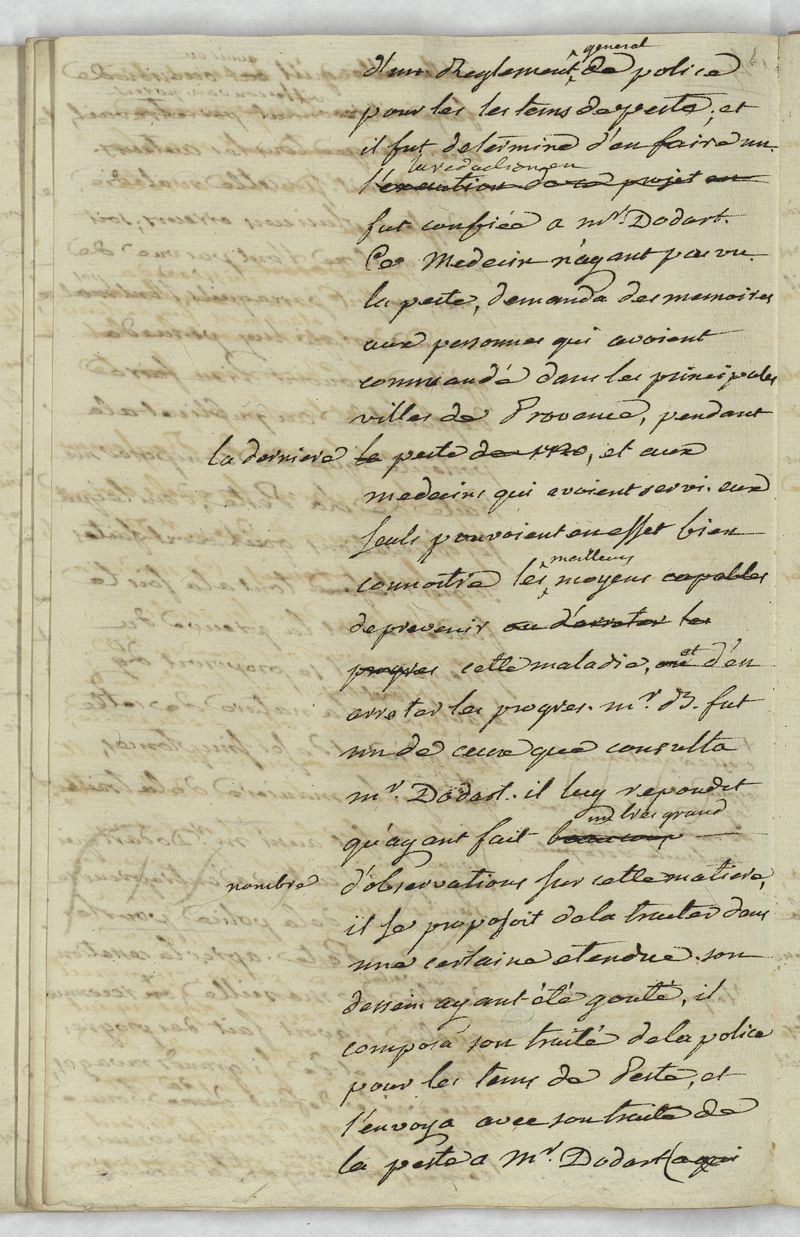 general
d'un Reglement de police
pour les les tems de peste; et
il fut determiné d'en faire un.
la redaction en
l'execution de ce projet en
fut confiée a mr. Dodart.
Ce Medecin n'ayant pas vu
la peste, demanda des memoires
aux personnes qui avoient
commandé dans les principales
villes de Provence, pendant
la derniere le peste de 1720, et aux
medecins qui avoient servi. eux
seuls pouvoient en effet bien
meilleurs
connoitre les moyens capables
de prevenir ou d'arreter les
et
progres cette maladie, ou d'en
arreter les progres. mr. d3. fut
un de ceux que consulta
mr. Dodart. il luy repondit
un tres grand
qu'ayant fait beaucoup
nombre d'observations sur cette matiere,
il se proposoit de la traiter dans
une certaine etendue. son
dessein ayant été gouté, il
composa son traité de la police
pour les tems de Peste, et
l'envoya avec son traité de
la peste a Mr. Dodart (a qui